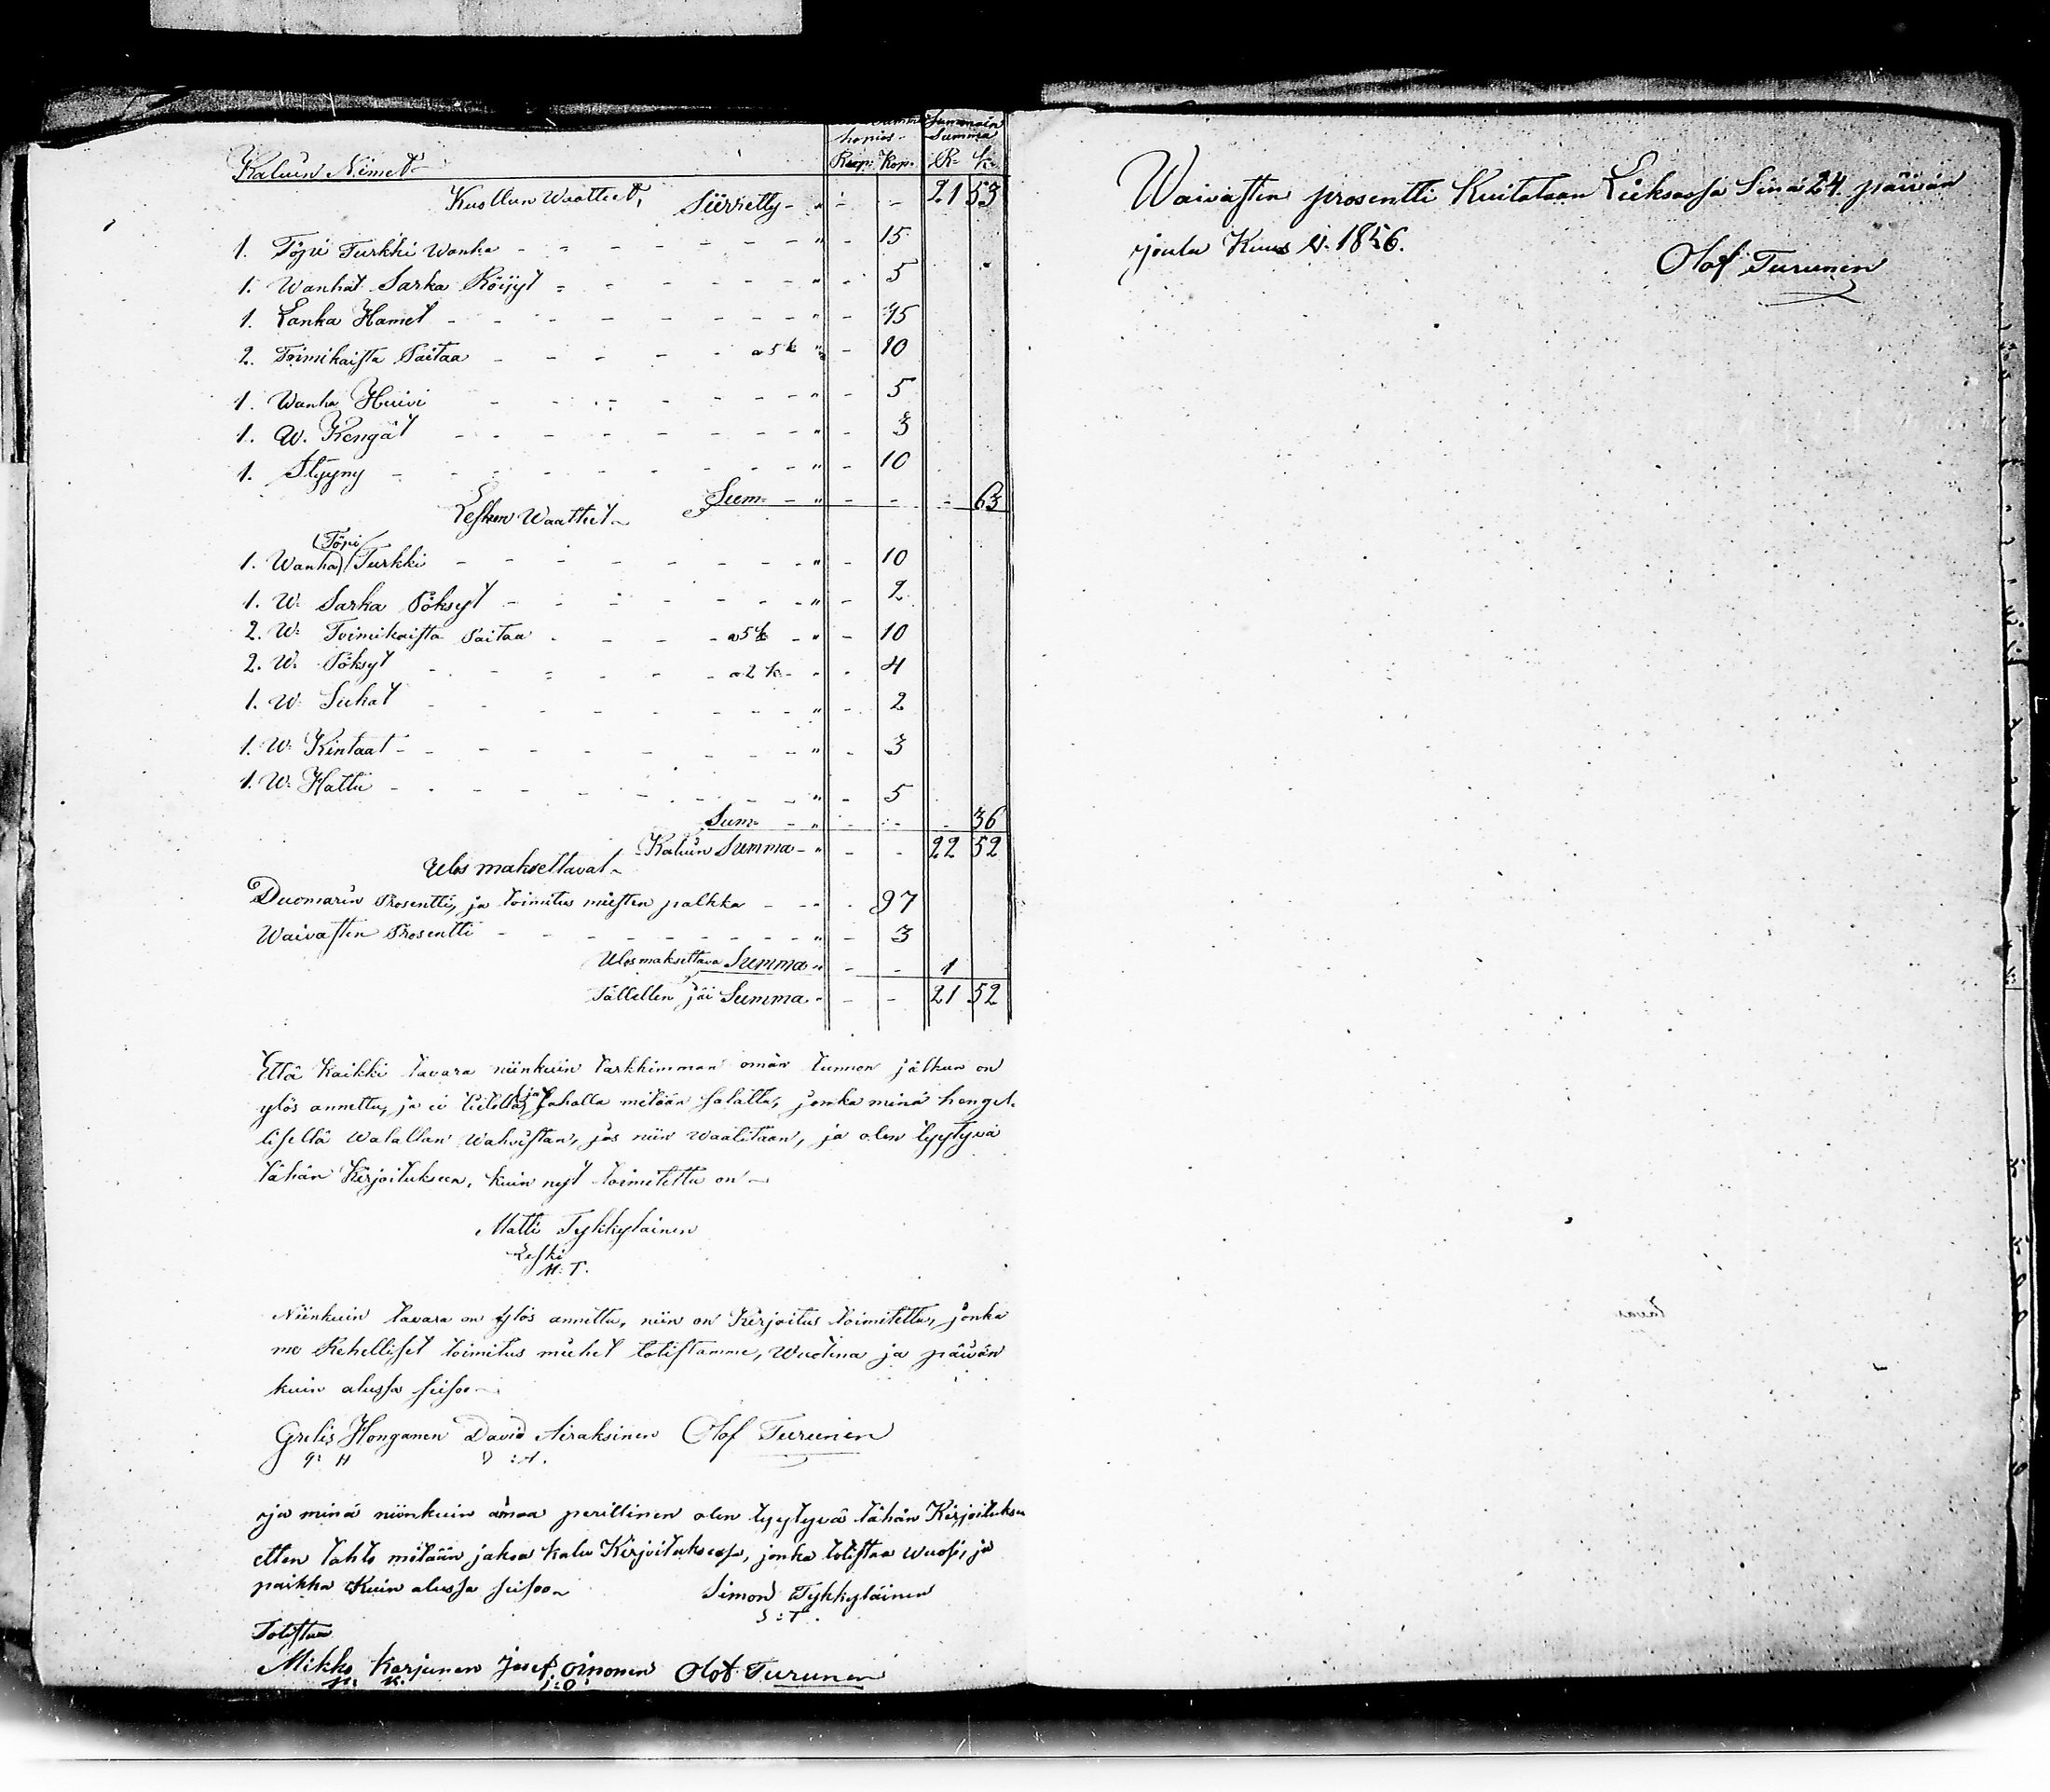 Summa Summain
hopias. Summa
Kaluin Nimet Rup: Kop. R= K=
Kuollun Waatteet, Siirretty - 21 53
1. Töpi Turkki Wanha - 15
1. Wanhat Sarka Röijyt - 5
1. Lanka Hamet - 15
2. Toimikaista Paitaa a 5 k - 10
1. Wanha Huivi - 5
1. W. Kengät - 3
1. Styyny - 10
Sum= - 63
Lesken Waattet
(Töpi)
1. Wanha Turkki - 10
1. W. Sarka Pöksyt - 2
2. W: Toimikaista Paitaa a 5 k - 10
2. W. Pöksyt a 2 k - 4
1. W. Sukat - 2
1. W: Kintaat - 3
1. W: Hattu - 5
Sum= - 36
Kaluin Summa - 22 52
Ulos maksettavat
Duomarin Prosentti, ja toimitus miesten palkka - 97
Waivasten Prosentti - 3
Ulosmaksettava Summa - 1
Tällellen jäi Summa - 21 52
Että kaikki tavara niinkuin tarkkimman oman tunnon jälkun on
ylös annettu, ja ei tietella ja tahalla mitään salattu, jonka minä hengel-
lisellä Walallan Wahvistan, jos niin waaditaan, ja olen tyytyvä
tähän Kirjoituksen, kuin nyt toimitettu on
Matti Tykkyläinen
Leski
M: T.
Niinkuin tavara on ylös annettu, niin on Kirjoitus toimitettu, jonka
me Rehelliset toimitus miehet totistamme, Wuotena ja päivän
kuin alussa seisoo
Grelis Honganen David Airaksinen Olof Turunen
G: H D : A.
ja minä niinkuin ainoa perillinen olen tyytyvä tähän Kirjoituksen
etten tahto mitään jaksa kalu Kirjoituksessa, jonka totistaa wuosi, ja
paikka kuin alussa seisoo Simon Tykkyläinen
S : T.
Totistaa
Mikko Karjunen Josef Oinonen Olof Turunen
M. K. J: O:
Waivasten prosentti Kuitataan Lieksassa Sinä 24. päivän
joulu Kuus v. 1856.
Olof Turunen